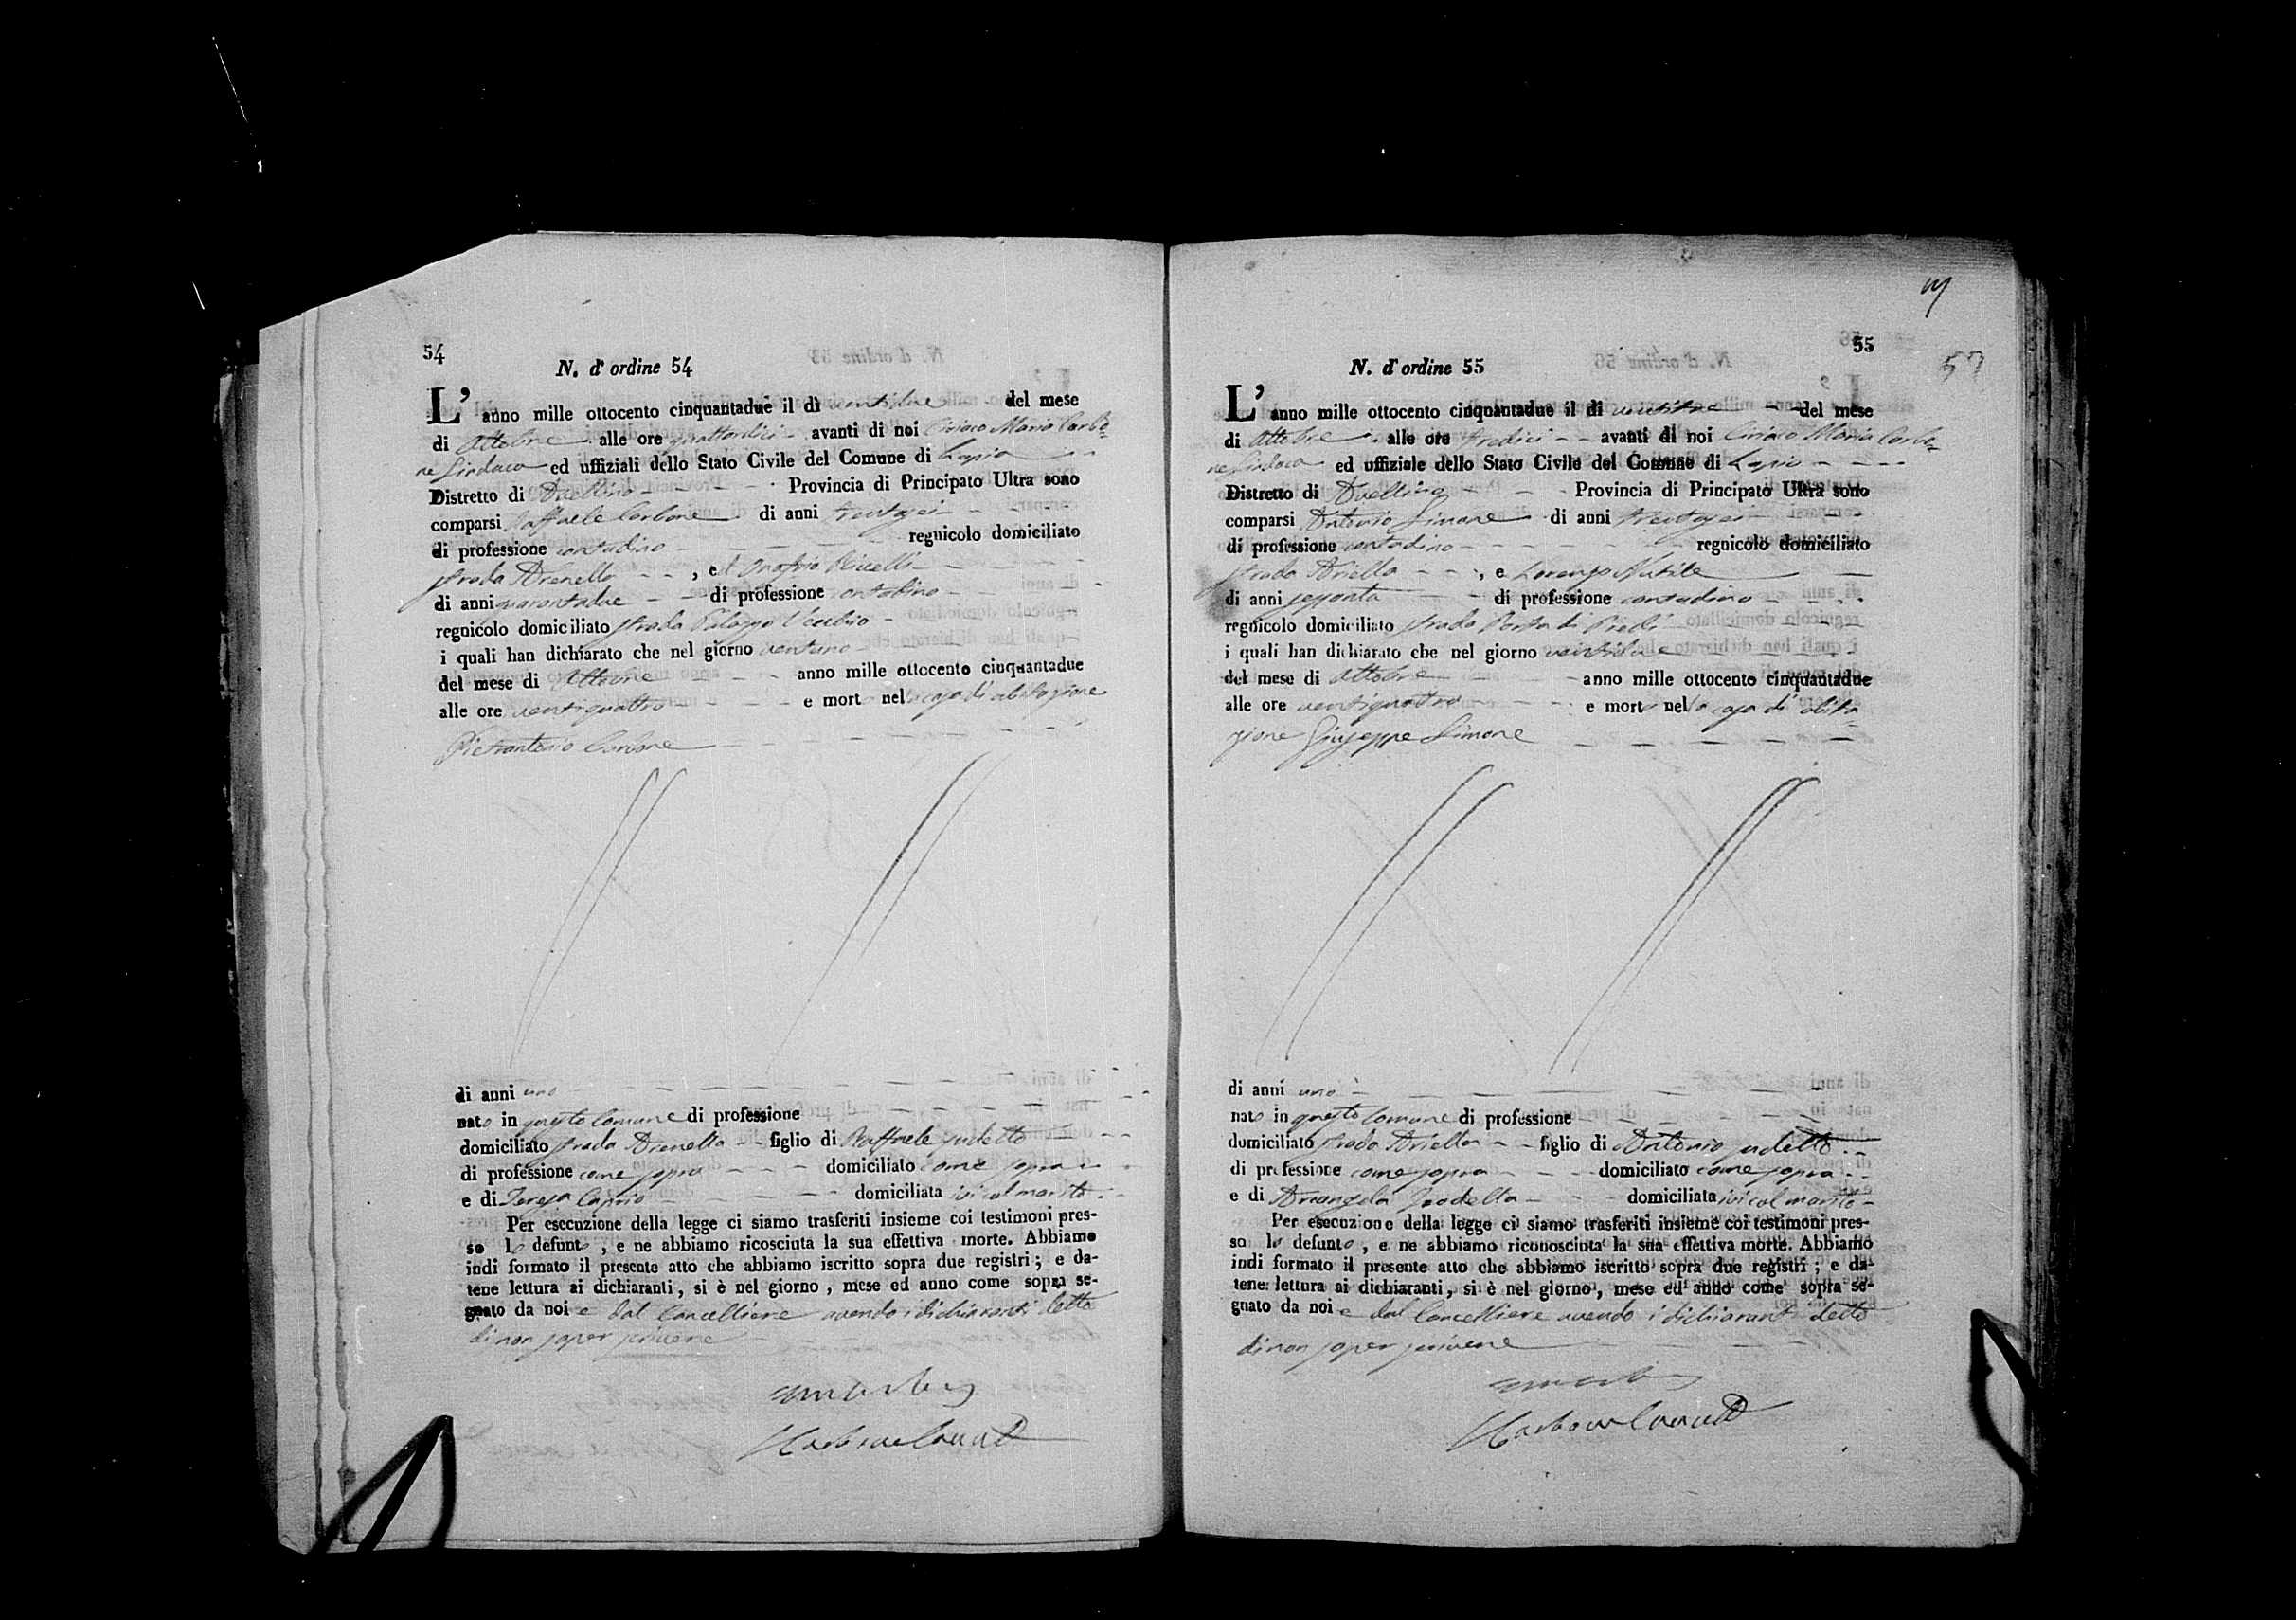 54
N. d'ordine 54
L'anno mille ottocento cinquantadue il dì ventidue del mese
di Ottobre alle ore quattordici avanti di noi Ciriaco Maria Carbo=
ne Sindaco ed uffiziali dello Stato Civile del Comune di Lapio
Distretto di Avellino Provincia di Principato Ultra sono
comparsi Raffaele Carbone di anni trentasei
di professione contadino regnicolo domiciliato
strada Arenella , ed Onofrio
di anni quarantadue di professione contadino
regnicolo domiciliato strada Palazzo Vecchio
i quali han dichiarato che nel giorno ventuno
del mese di Ottobre anno mille ottocento cinquantadue
alle ore ventiquattro e mort nella casa di abitazione
Pietrantonio Carbone
di anni uno
nato in questo Comune di professione
domiciliato strada Arenella figlio di Raffaele sudetto
di professione come sopra domiciliato come sopra
e di Teresa Caprio domiciliata ivi col marito
Per esecuzione della legge ci siamo trasferiti insieme coi testimoni pres-
so lo defunto , e ne abbiamo ricosciuta la sua effettiva morte. Abbiamo
indi formato il presente atto che abbiamo iscritto sopra due registri ; e da-
tene lettura ai dichiaranti, si è nel giorno , mese ed anno come sopra se-
gnato da noi e dal Cancelliere avendo i dichiaranti detto
di non saper scrivere
55
N. d'ordine 55
L'anno mille ottocento cinquantadue il dì ventitre del mese
di Ottobre alle ore tredici avanti di noi Ciriaco Maria Carbo=
ne Sindaco ed uffiziale dello Stato Civile del Comune di Lapio
Distretto di Avellino Provincia di Principato Ultra sono
comparsi Antonio Simone di anni trentasei
di professione contadino regnicolo domiciliato
strada Ariella , e Lorenzo Nutile
di anni sessanta di professione contadino
regnicolo domiciliato strada Porta di
i quali han dichiarato che nel giorno ventidue
del mese di Ottobre anno mille ottocento cinquantadue
alle ore ventiquattro e morto nella casa di abita=
zione Giuseppe Simone
di anni uno
nato in questo Comune di professione
domiciliato strada Ariella figlio di Antonio sudetto
di professione come sopra domiciliato come sopra
e di Arcangela domiciliata ivi col marito
Per esecuzione della legge ci siamo trasferiti insieme coi testimoni pres-
so lo defunto, e ne abbiamo riconosciuta la sua effettiva morte. Abbiamo
indi formato il presente atto che abbiamo iscritto sopra due registri ; e da-
tene lettura ai dichiaranti, si è nel giorno, mese ed anno come sopra se-
gnato da noi e dal Cancelliere avendo i dichiaranti detto
di non saper scrivere